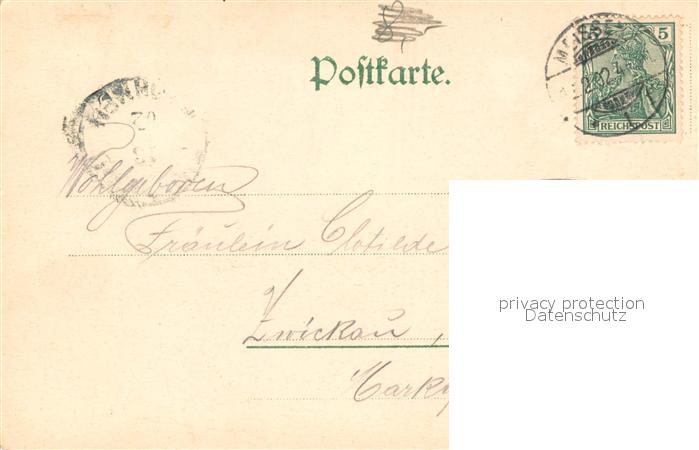 Postkarte.
5
REICHSPOST
Wohlgeboren
Fräulein Clotilde
Zwickau,
privacy protection
Datenschutz